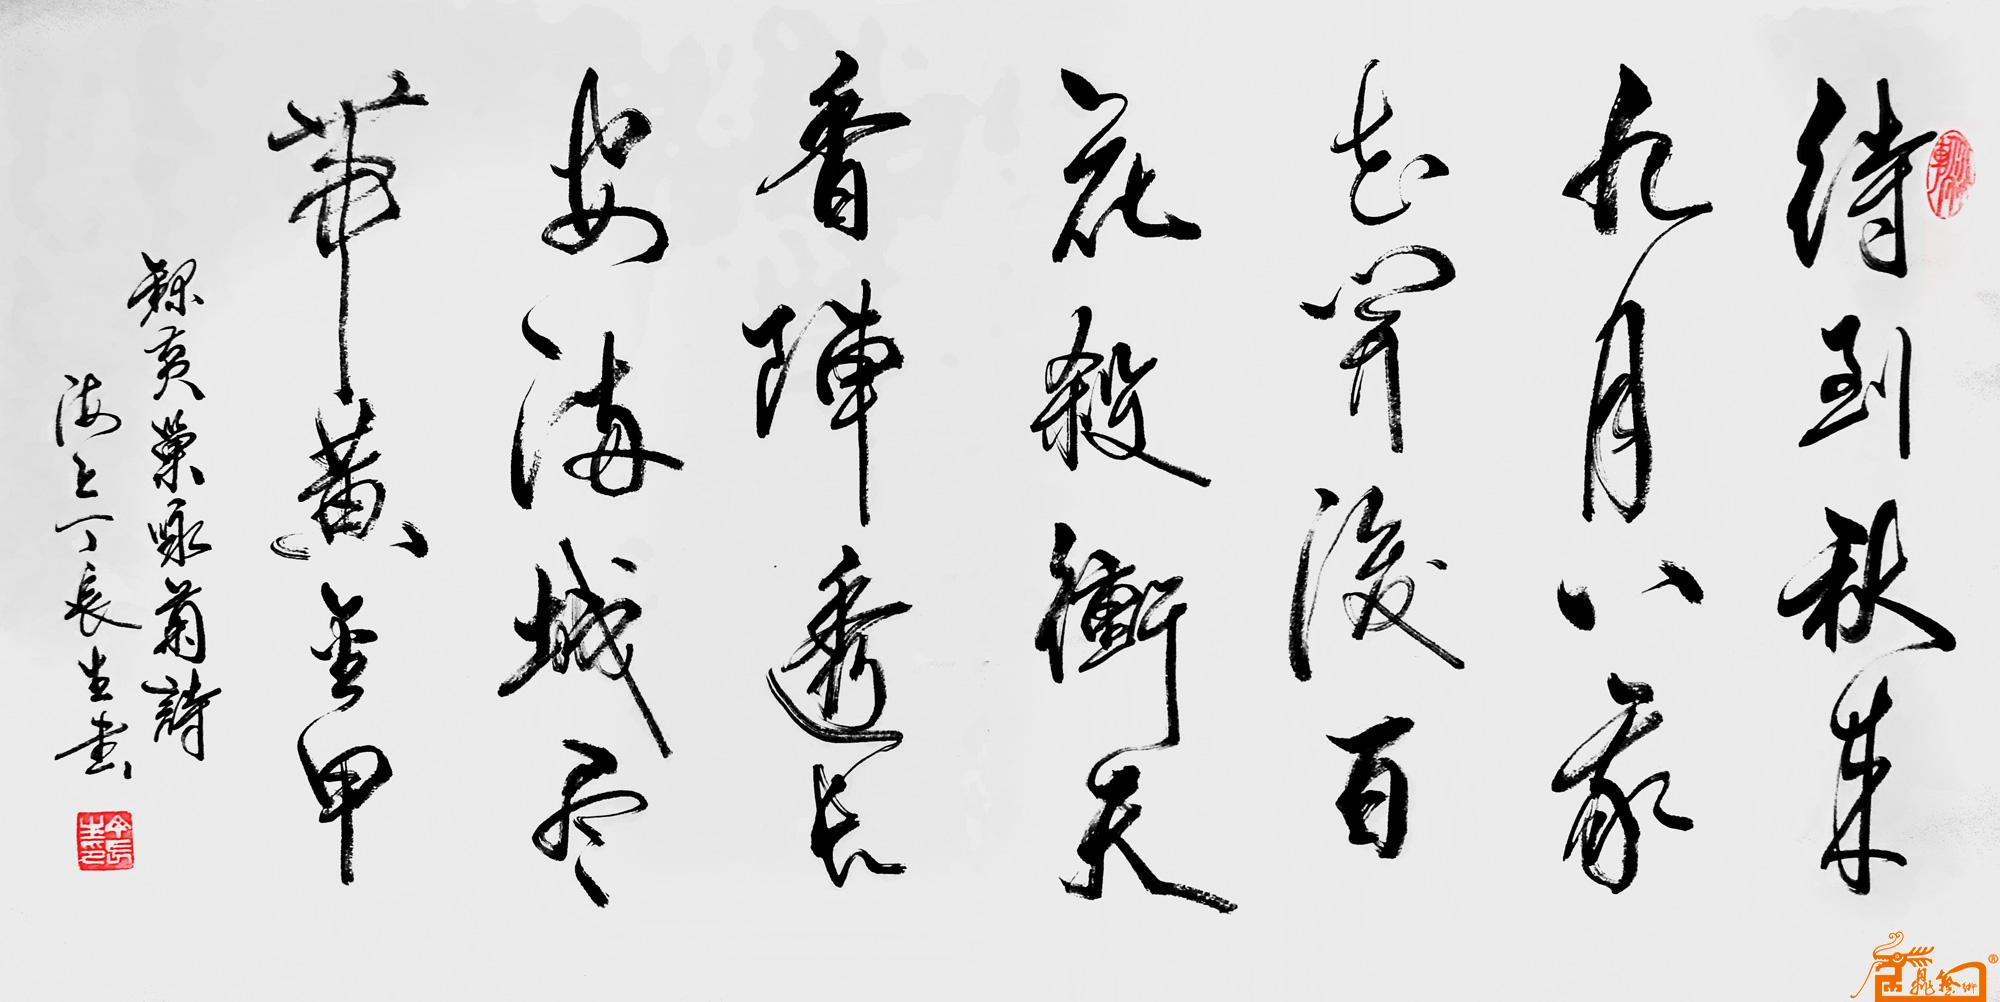 待到秋来
九月八我
花開後百
花殺衝天
香陣透長
安满城尽
帶黄金甲
録黄巢咏菊詩
海上丁長生書